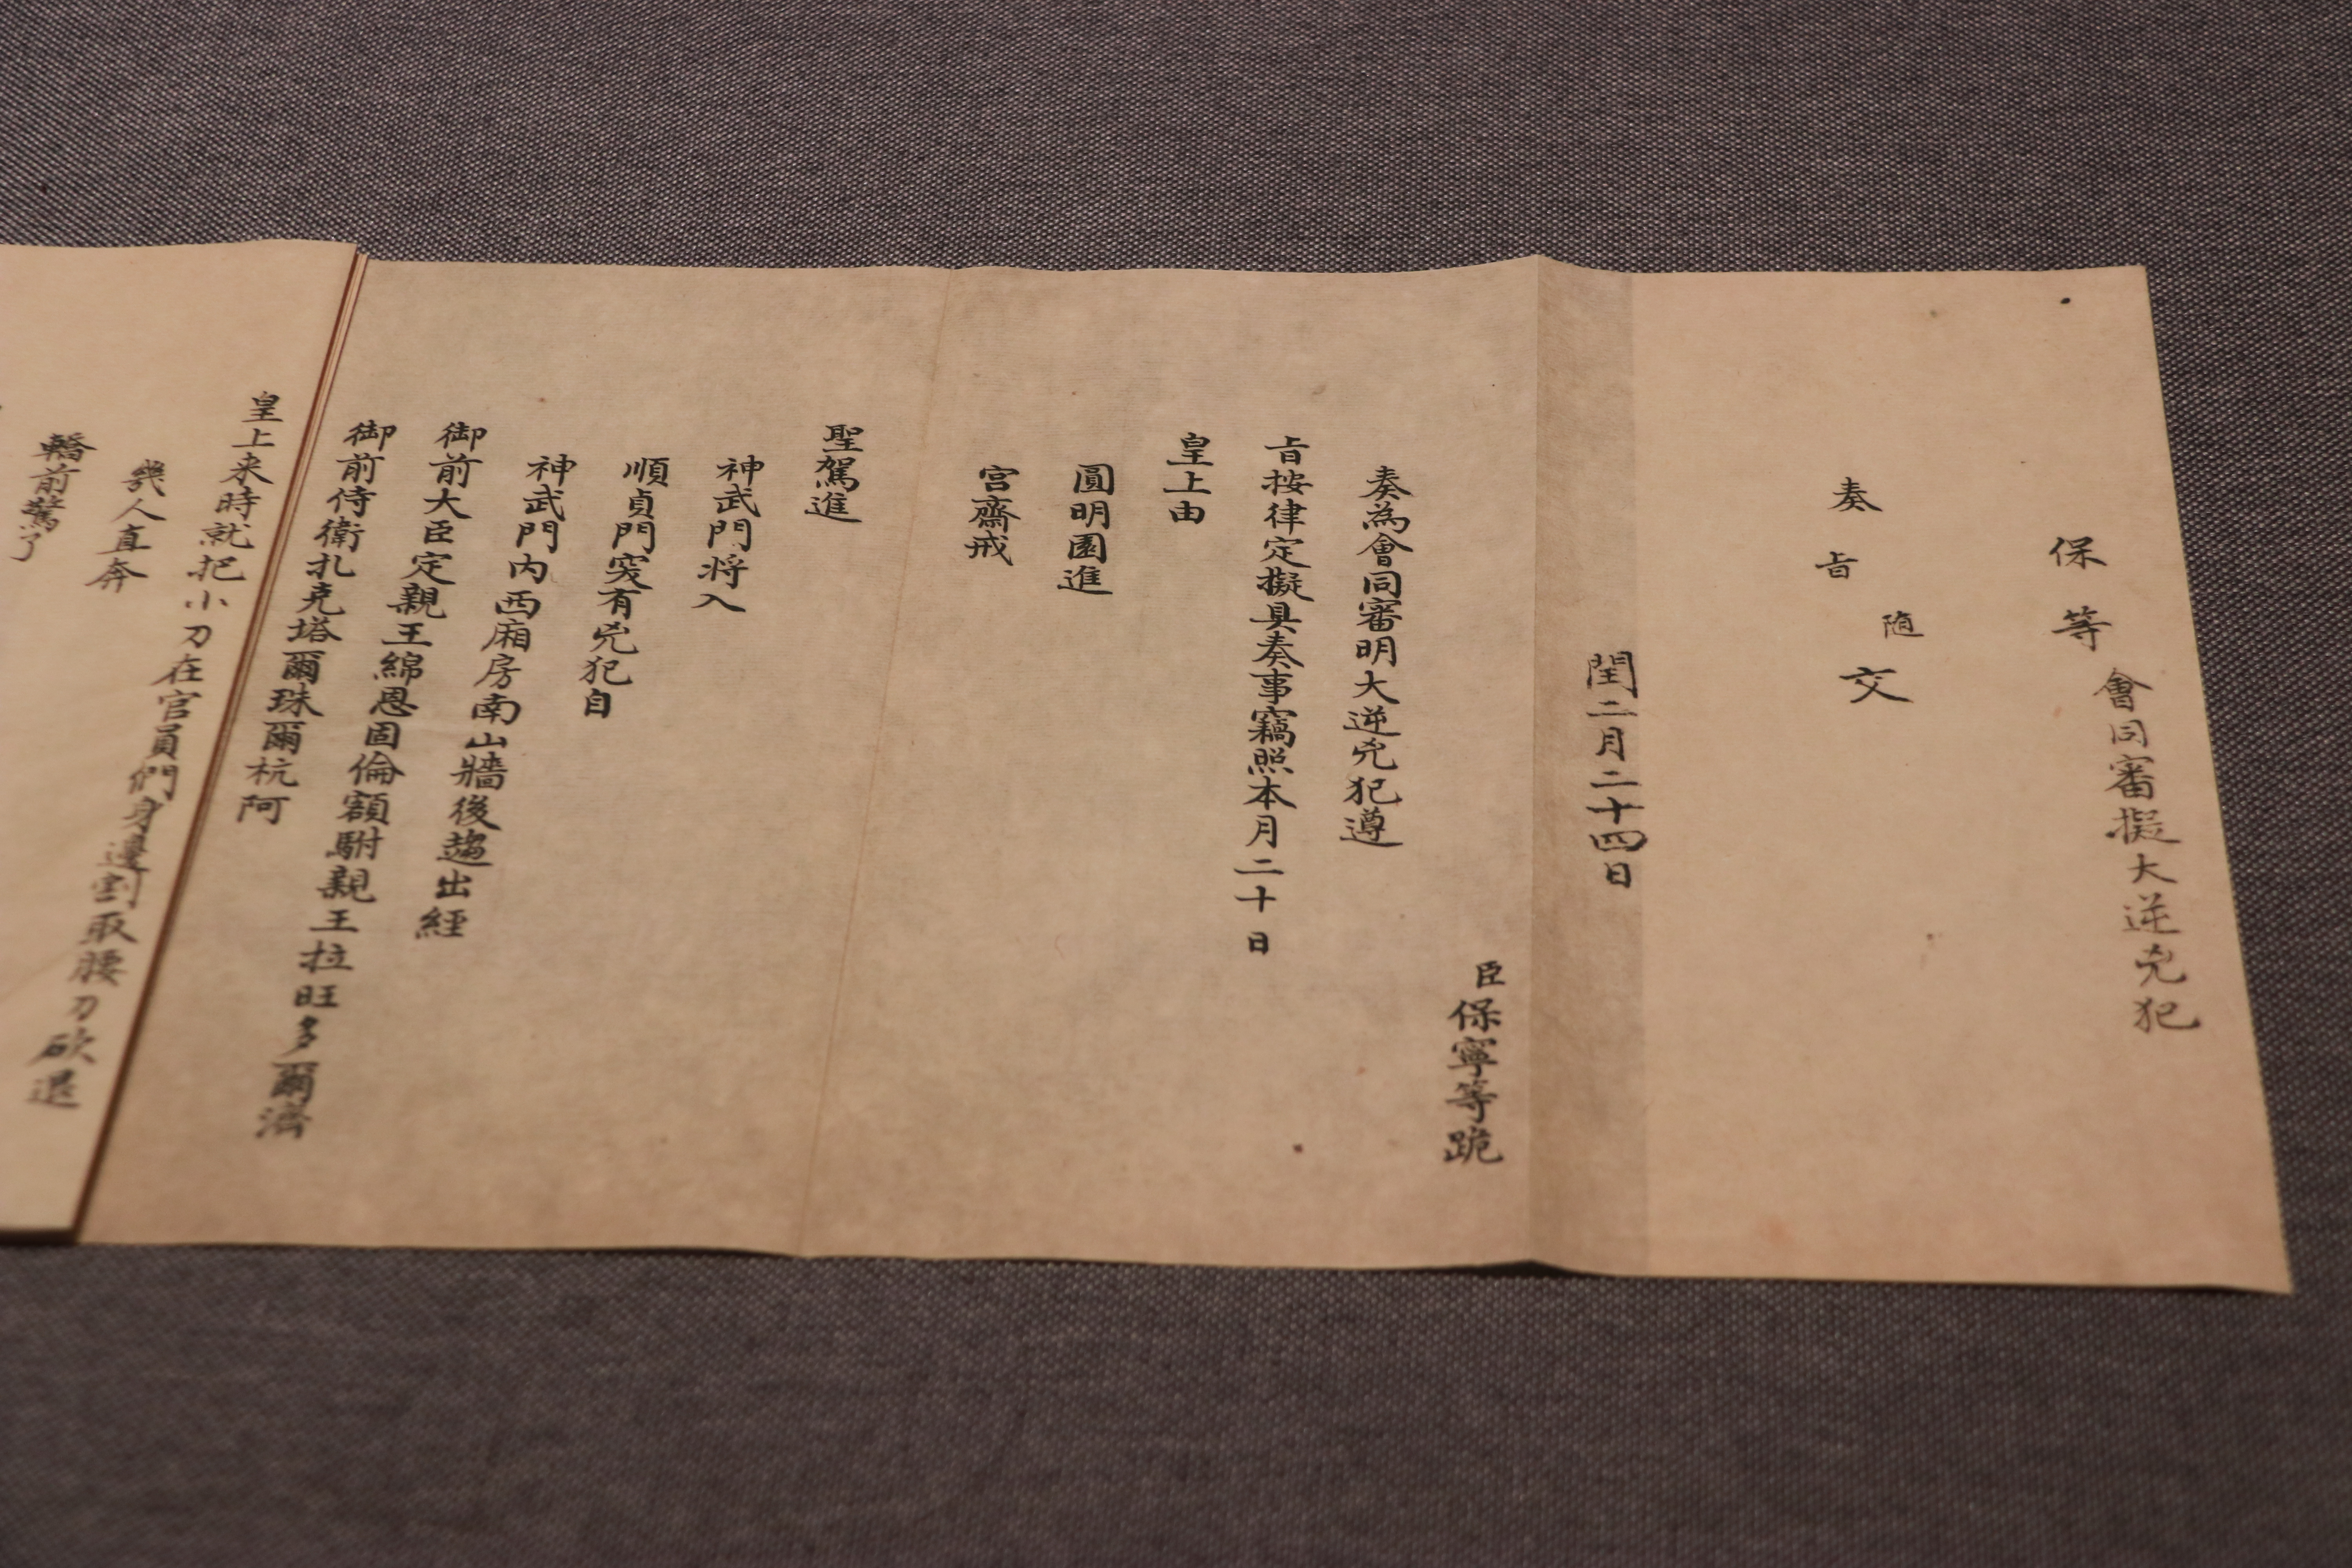 保等
會同審擬大逆兇犯
奏
旨
随
交
閏二月二十四日
臣保寧等跪
奏為會同審明大逆兇犯遵
旨按律定擬具奏事竊照本月二十日
皇上由
圓明園進
宮齋戒
聖駕進
神武門将入
順貞門突有兇犯自
神武門内西廂房南山牆後趨出經
御前大臣定親王綿恩固倫額駙親王拉旺多爾濟
御前侍衛扎克塔爾珠爾杭阿
皇上来時就把小刀在官員們身邊割取腰刀砍退
幾人直奔
轎前驚了